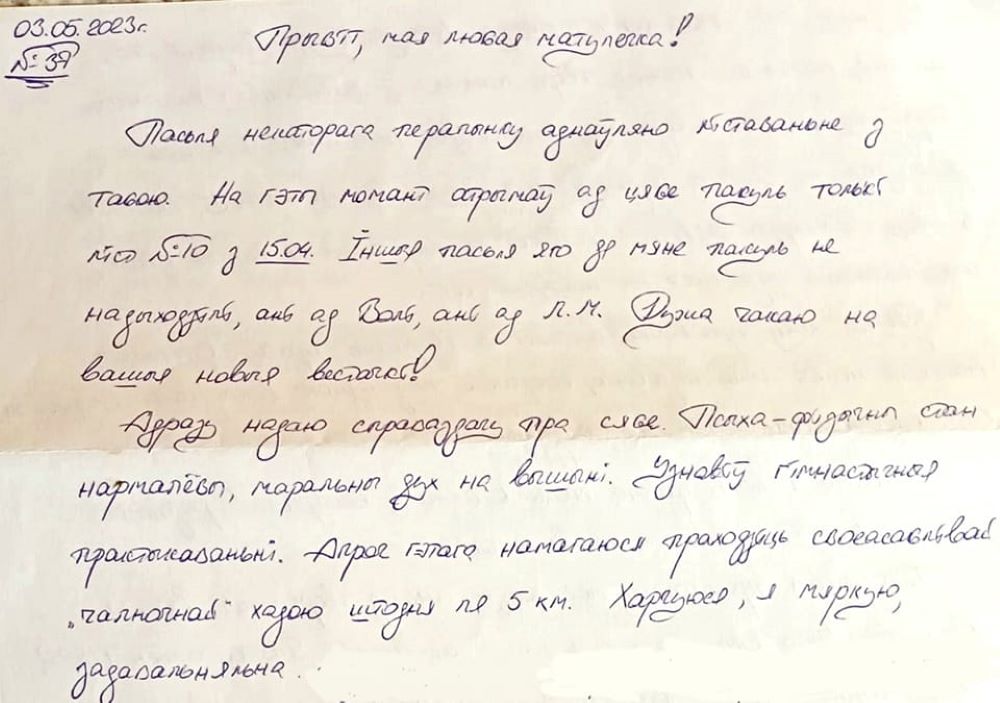 03.05.2023г.
№37
Прывіт, мая любая матулечка!
Пасьля некаторага перапынку аднаўляю ліставаньне з
табою. На гэты момант атрымаў ад цябе пакуль толькі
ліст №10 з 15.04. Іншыя пасьля яго да мяне пакуль не
надыходзілі, ані ад Волі, ані ад Л.М. Дужа чакаю на
вашыя новыя вестачкі!
Адразу надаю справаздачу пра сябе. Псыха-фізычны стан
нармалёвы, маральны дух на вышыні. Узнавіў гімнастычныя
практыкаваньні. Апроч гэтага намагаюся праходзіць своеасаблівай
„чаўночнай" хадою штодня па 5 км. Харчуюся, я мяркую,
задавальняльна.